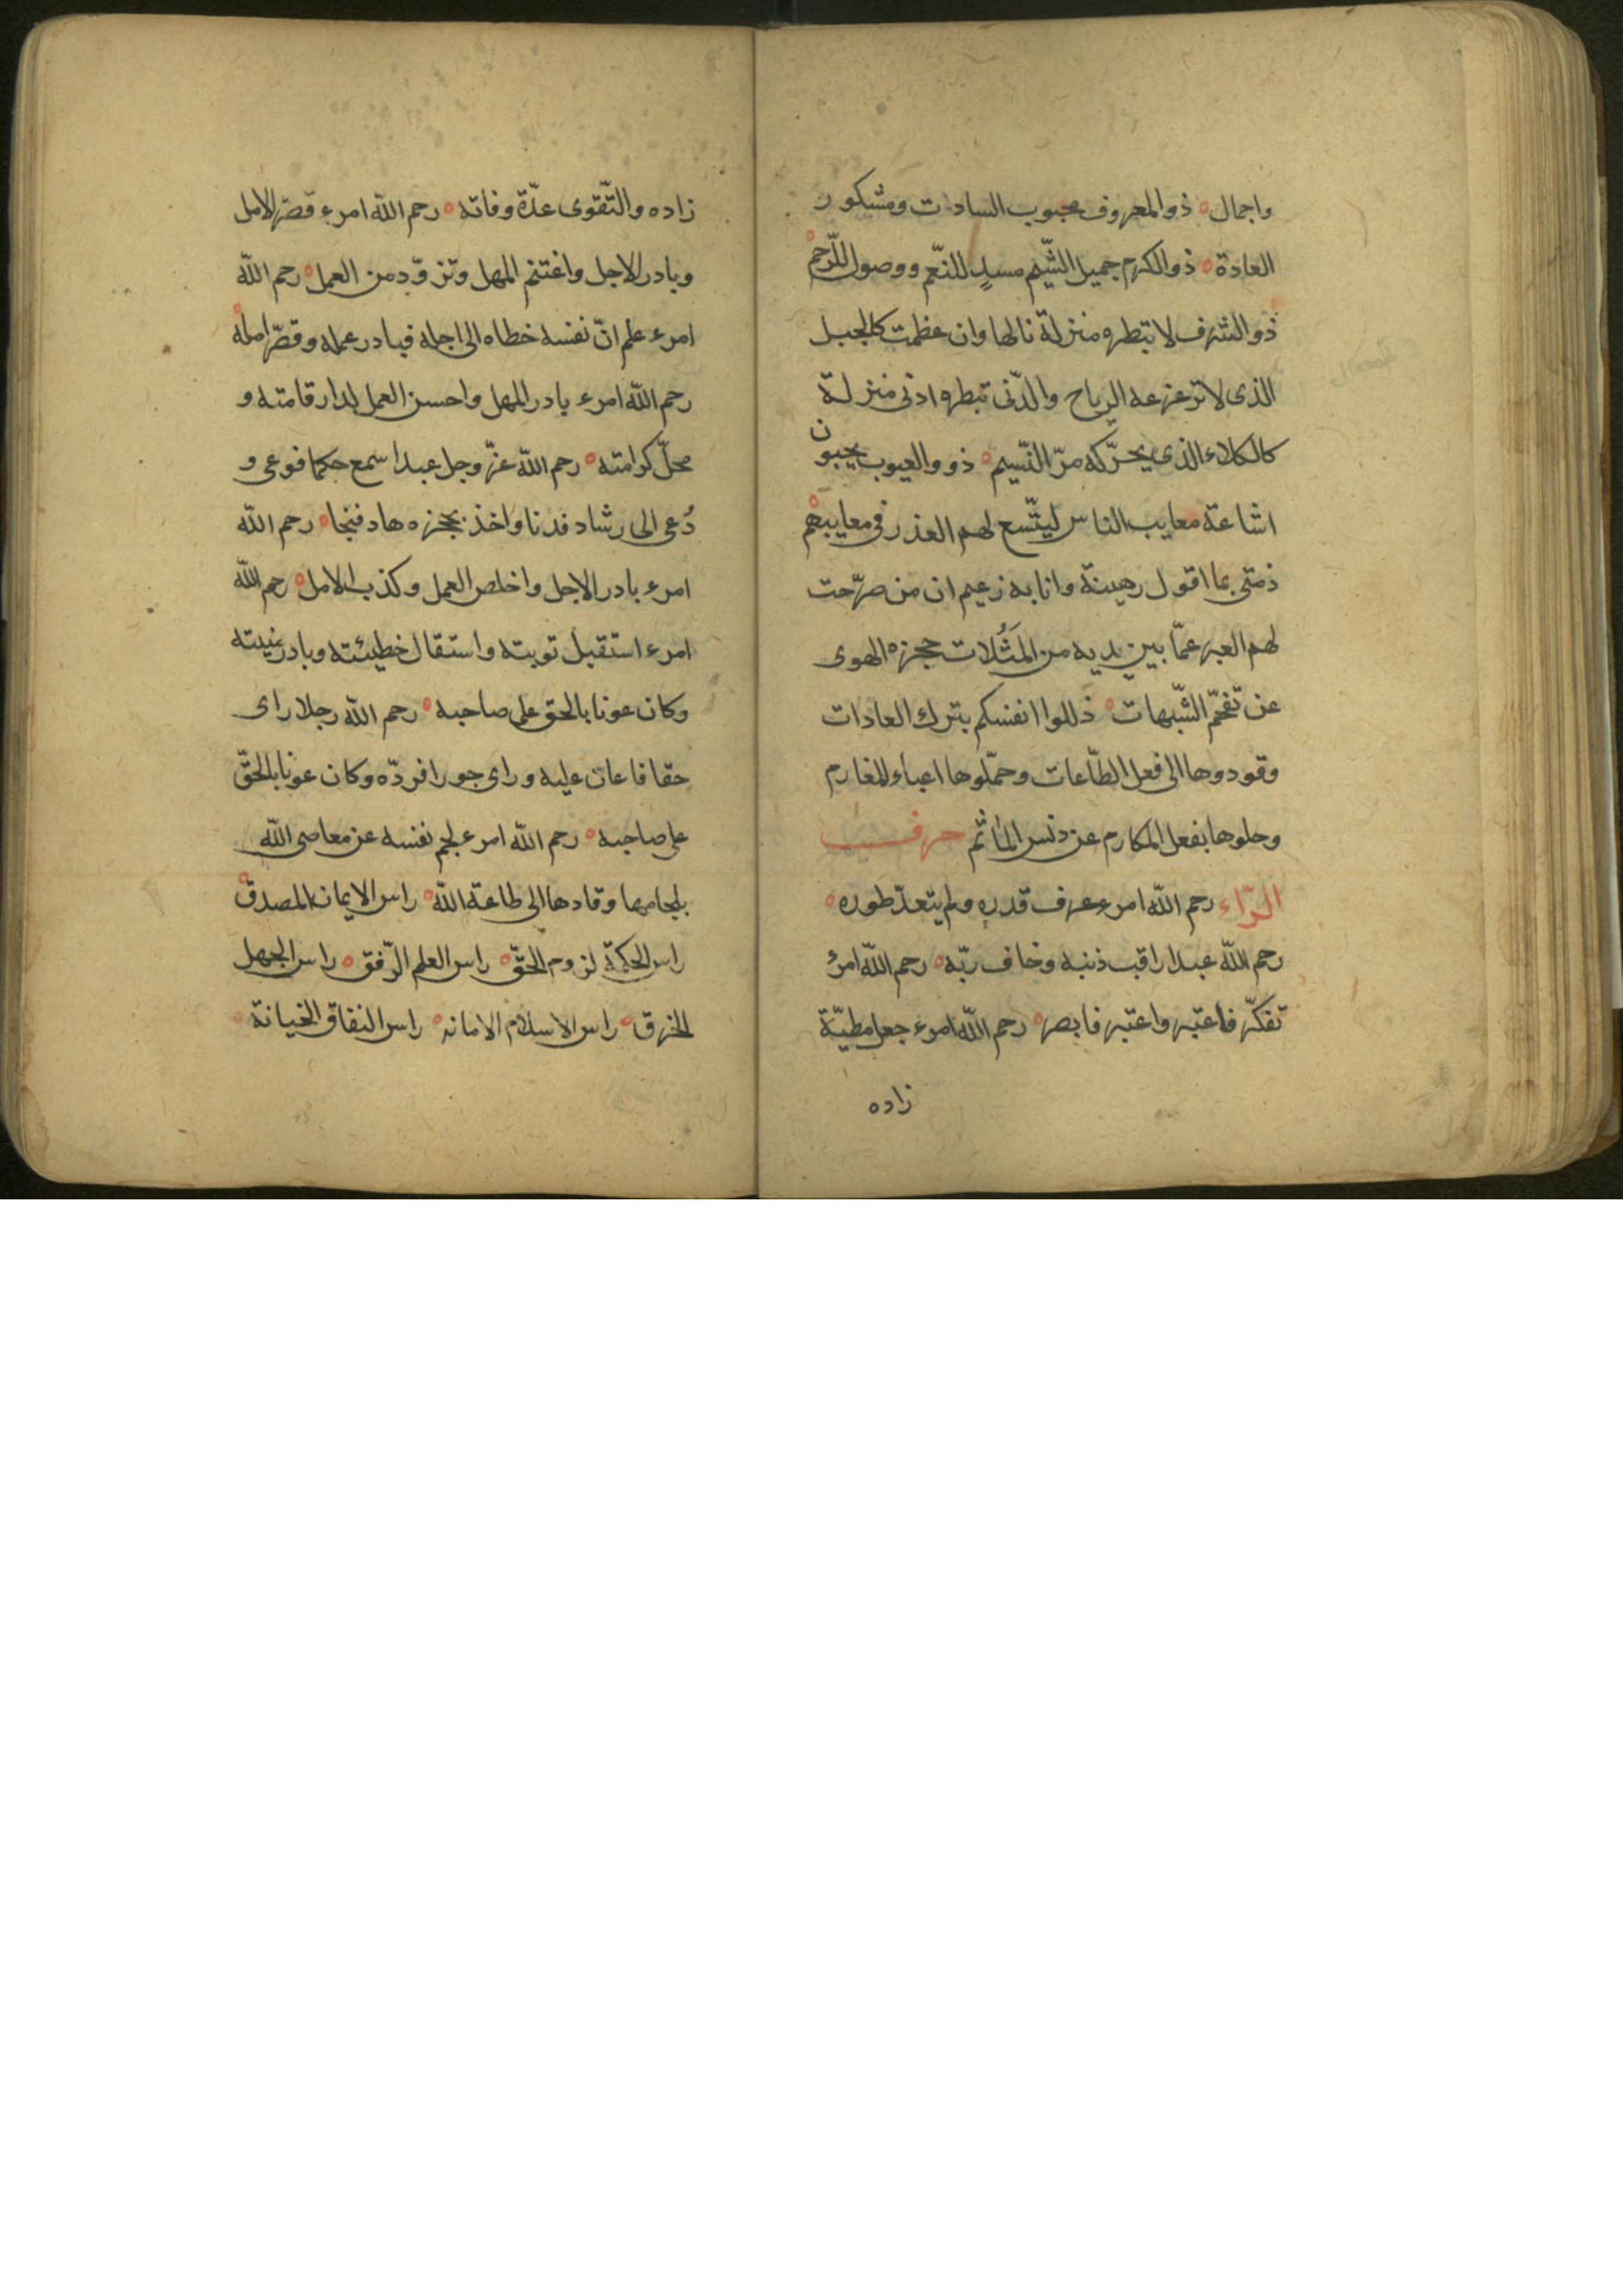 واجمال ه ذو المعروف محبوب السادات ومشكور
العادة ه ذو الكرم جميل الشّيم مسدٍ للنّعم ووصول للّرحم ه
ذو الشرف لا تبطره منزلة نالها وان عظمت كالجبل
الذى لا تزعزعه الرياح والدّنى تبطره ادنى منزلة
كالكلاء الذى يحرّكه مرّ النّسيم ه ذوو العيوب يحبون
اشاعة معايب الناس ليتّسع لهم العذر فى معايبهم ه
ذمتى بما اقول رهينة وانا به زعيم ان من صرّحت
لهم العبر عمّا بين يديه من المَثُلات حجزه الهوى
عن تقحّم الشّبهات ه ذللوا انفسكم بترك العادات
وقودوها الى فعل الطّاعات وحمّلوها اعباء المغارم
وحلوها بفعل المكارم عن دنس المآثم حرف
الرّاء رحم اللّه امرء عرف قدره ولم يتعدّ طوره ه
رحم اللّه عبدا راقب ذنبه وخاف ربّه ه رحم اللّه امرئ
تفكّر فاعتبر واعتبر فابصر ه رحم اللّه امرء جعل مطيّة
زاده
زاده والتّقوى عدّة وفاته ه رحم اللّه امرء قصّر الامل
وبادر الاجل واغتنم المهل وتزوّد من العمل ه رحم اللّه
امرء علم انّ نفسه خطاه الى اجله فبادر عمله وقصّر امله ه
رحم اللّه امرء بادر المهل واحسن العمل لدار قامته و
محلّ كرامته ه رحم اللّه عزّ وجل عبدا سمع حكما فوعى و
دُعى الى رشاد فدنا واخذ بحجزه هاد فنجا ه رحم اللّه
امرء بادر الاجل واخلص العمل وكذب الامل ه رحم اللّه
امرء استقبل توبته واستقال خطيئته وبادر منيته
وكان عونا بالحق على صاحبه ه رحم اللّه رجلا راى
حقا فاعان عليه وراى جورا فردّه وكان عونا بالحقّ
على صاحبه ه رحم اللّه امرء لجم نفسه عن معاصى اللّه
بلجامها وقادها الى طاعة اللّه ه راس الايمان المصدق ه
راس الحكمة لزوم الحقّ ه راس العلم الرّفق ه راس الجهل
الخرق ه راس الاسلام الامانه ه راس النفاق الخيانة ه